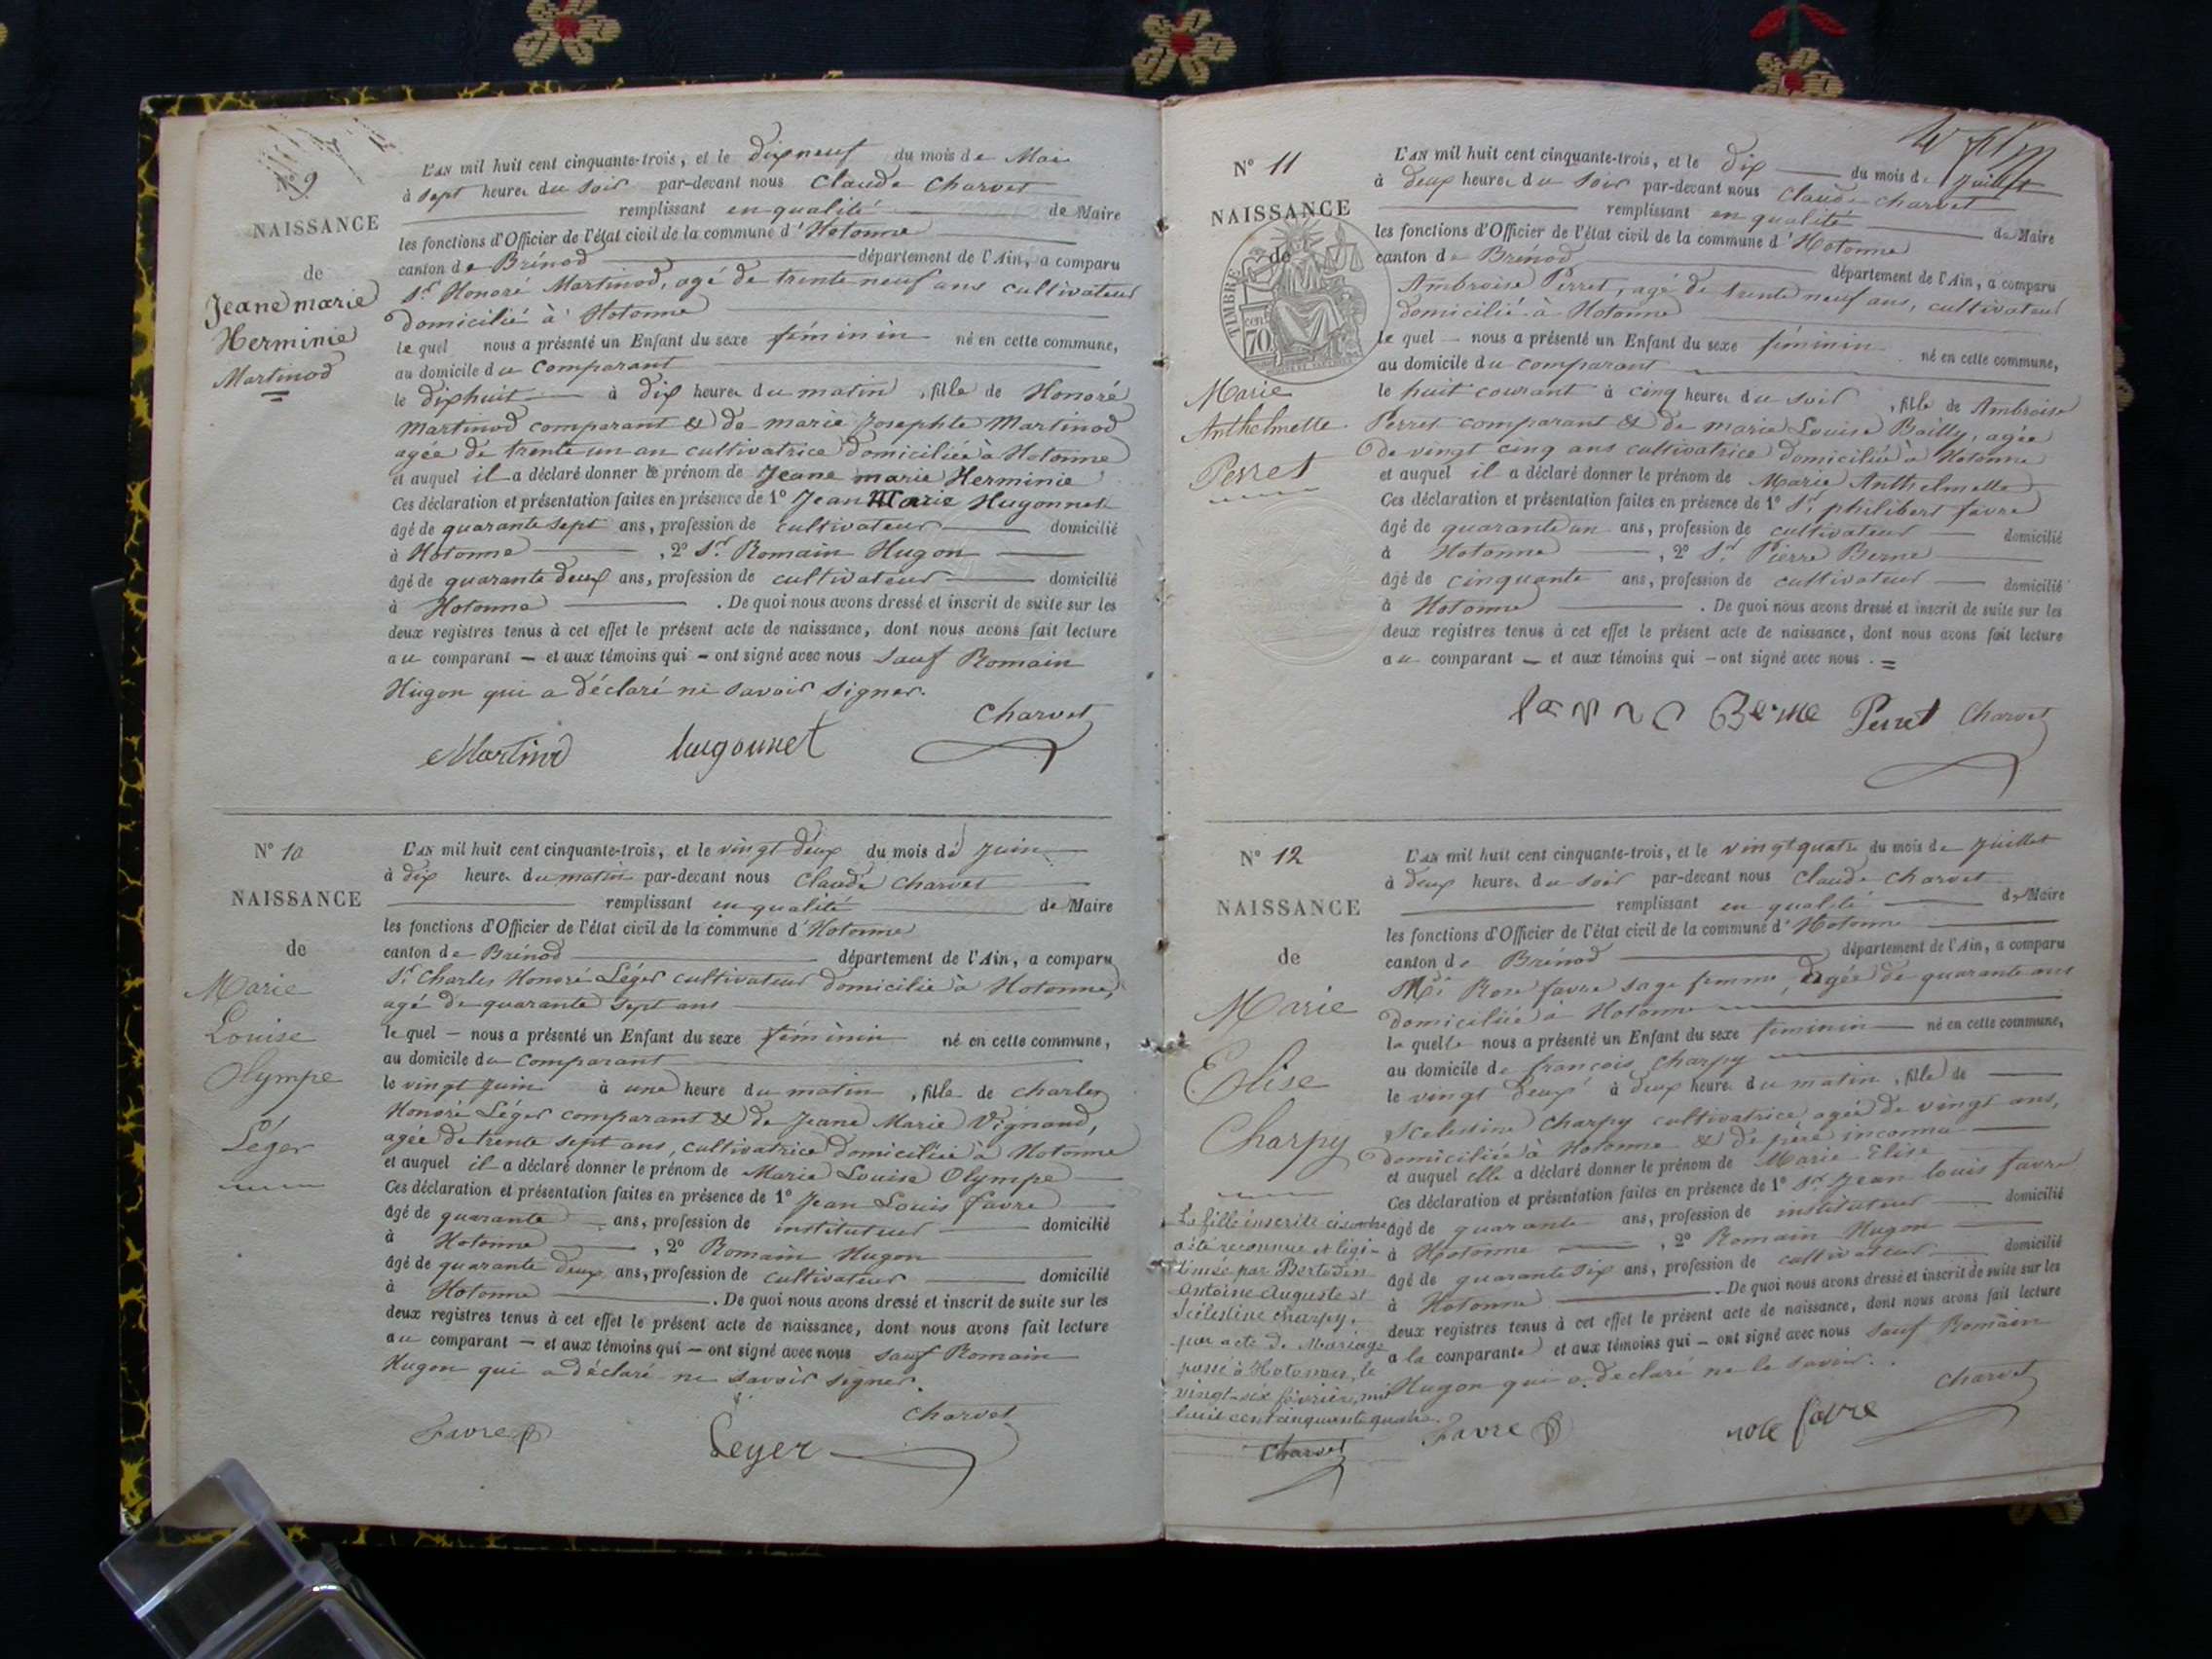 N° 9
NAISSANCE
de
Jeane marie
Herminie
Martinod
L'AN mil huit cent cinquante-trois, et le dixneuf du mois de Mai
à sept heures du soir par-devant nous Claude Charvet
remplissant en qualité de Maire
les fonctions d'Officier de l'état civil de la commune d'Hotonne
canton de Brénod département de l'Ain, a comparu
Sr Honoré Martinod, agé de trente neuf ans cultivateur
domicilié à Hotonne
le quel nous a présenté un Enfant du sexe féminin né en cette commune,
au domicile du comparant
le dixhuit à dix heures du matin, fille de Honoré
Martinod comparant & de marie Josephte Martinod
agée de trente un an cultivatrice domiciliée à Hotonne
et auquel il a déclaré donner le prénom de Jeane marie Herminie
Ces déclaration et présentation faites en présence de 1° Jean Marie Hugonnet
âgé de quarante sept ans, profession de cultivateur domicilié
à Hotonne, 2° Sr Romain Hugon
âgé de quarante deux ans, profession de cultivateur domicilié
à Hotonne. De quoi nous avons dressé et inscrit de suite sur les
deux registres tenus à cet effet le présent acte de naissance, dont nous avons fait lecture
au comparant - et aux témoins qui - ont signé avec nous sauf Romain
Hugon qui a déclaré ne savoir signer.
Charvet
Martinod hugonnet
N° 10
NAISSANCE
de
Marie
Louise
Olympe
Léger
L'AN mil huit cent cinquante-trois, et le vingt deux du mois de juin
à dix heures du matin par-devant nous Claude Charvet
remplissant en qualité de Maire
les fonctions d'Officier de l'état civil de la commune d'Hotonne
canton de Brénod département de l'Ain, a comparu
Sr Charles Honoré Léger cultivateur domicilié à Hotonne,
agé de quarante sept ans
le quel - nous a présenté un Enfant du sexe féminin né en cette commune,
au domicile du comparant
le vingt juin à une heure du matin, fille de charles
Honoré Léger comparant & de Jeane Marie Vignand,
agée de trente sept ans, cultivatrice domiciliée à Hotonne
et auquel il a déclaré donner le prénom de Marie Louise Olympe
Ces déclaration et présentation faites en présence de 1° Jean Louis favre
âgé de quarante ans, profession de instituteur domicilié
à Hotonne, 2° Romain Hugon
âgé de quarante deux ans, profession de cultivateur domicilié
à Hotonne. De quoi nous avons dressé et inscrit de suite sur les
deux registres tenus à cet effet le présent acte de naissance, dont nous avons fait lecture
au comparant - et aux témoins qui - ont signé avec nous sauf Romain
Hugon qui a déclaré ne savoir signer.
Charvet
Favre Leger
N° 11
NAISSANCE
de
TIMBRE
70 cent
Marie
Anthelmette
Perret
L'AN mil huit cent cinquante-trois, et le dix du mois de juillet
à deux heures du soir par-devant nous Claude Charvet
remplissant en qualité de Maire
les fonctions d'Officier de l'état civil de la commune d'Hotonne
canton de Brénod département de l'Ain, a comparu
Ambroise Perret, agé de trente neuf ans, cultivateur
domicilié à Hotonne
le quel - nous a présenté un Enfant du sexe féminin né en cette commune,
au domicile du comparant
le huit courant à cinq heures du soir, fille de Ambroise
Perret comparant & de marie Louise Bailly, agée
de vingt cinq ans cultivatrice domiciliée à Hotonne
et auquel il a déclaré donner le prénom de Marie Anthelmette
Ces déclaration et présentation faites en présence de 1° Sr philibert favre
âgé de quarante un ans, profession de cultivateur domicilié
à Hotonne, 2° Sr Pierre Berne
âgé de cinquante ans, profession de cultivateur domicilié
à Hotonne. De quoi nous avons dressé et inscrit de suite sur les
deux registres tenus à cet effet le présent acte de naissance, dont nous avons fait lecture
au comparant - et aux témoins qui - ont signé avec nous. =
Berne Perret Charvet
N° 12
NAISSANCE
de
Marie
Elise
Charpy
L'AN mil huit cent cinquante-trois, et le vingt quatre du mois de juillet
à deux heures du soir par-devant nous Claude Charvet
remplissant en qualité de Maire
les fonctions d'Officier de l'état civil de la commune d'Hotonne
canton de Brénod département de l'Ain, a comparu
Rose favre sage femme, agée de quarante ans
domiciliée à Hotonne
la quelle nous a présenté un Enfant du sexe féminin né en cette commune,
au domicile de françois Charpy
le vingt deux à deux heures du matin, fille de
Scelestine Charpy cultivatrice agée de vingt ans,
domiciliée à Hotonne & de père inconnu
et auquel elle a déclaré donner le prénom de Marie Elise
Ces déclaration et présentation faites en présence de 1° Sr Jean louis favre
âgé de quarante ans, profession de instituteur domicilié
à Hotonne, 2° Romain Hugon
âgé de quarante six ans, profession de cultivateur domicilié
à Hotonne. De quoi nous avons dressé et inscrit de suite sur les
deux registres tenus à cet effet le présent acte de naissance, dont nous avons fait lecture
a la comparante et aux témoins qui - ont signé avec nous sauf Romain
Hugon qui a déclaré ne le savoir.
Charvet
Favre rose favre
La fille inscrite ci contre
a été reconnue et légi-
timée par Bertodin
Antoine Auguste et
Scélestine charpy,
par acte de Mariage
passé à Hotonnes, le
vingt-six février, mil
huit cent cinquante quatre.
Charvet